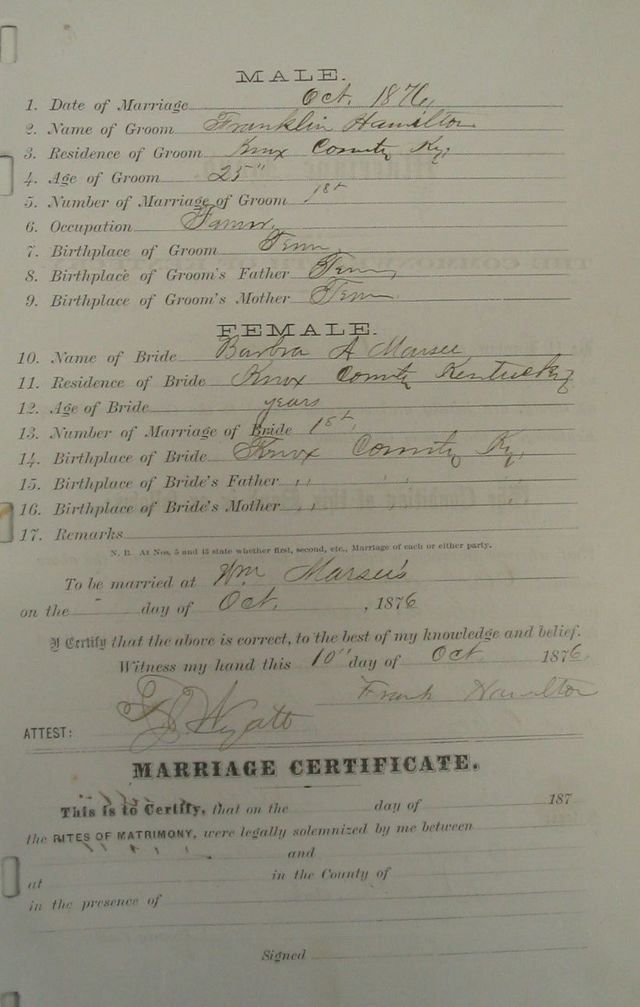 MALE.
1. Date of Marriage Oct. 1876,
2. Name of Groom Franklin Hamilton
3. Residence of Groom Knox County Ky.
4. Age of Groom 25"
5. Number of Marriage of Groom 1st
6. Occupation Farmer,
7. Birthplace of Groom Tenn,
8. Birthplace of Groom's Father Tenn,
9. Birthplace of Groom's Mother Tenn
FEMALE.
10. Name of Bride Barbra A Marsee
11. Residence of Bride Knox County Kentucky
12. Age of Bride years
13. Number of Marriage of Bride 1st,
14. Birthplace of Bride Knox County Ky,
15. Birthplace of Bride's Father ,, ,, ,
16. Birthplace of Bride's Mother ,, ,, ,,
17. Remarks
N. B. At Nos. 5 and 13 state whether first, second, etc., Marriage of each or either party.
To be married at Wm Marsee's
on the - day of Oct. , 1876
I Certify that the above is correct, to the best of my knowledge and belief.
Witness my hand this 10" day of Oct 1876
Frank Hamilton
ATTEST: Wyatt
MARRIAGE CERTIFICATE.
This is to Certify, that on the day of 187
the RITES OF MATRIMONY, were legally solemnized by me between
and
at in the County of
in the presence of
Signed